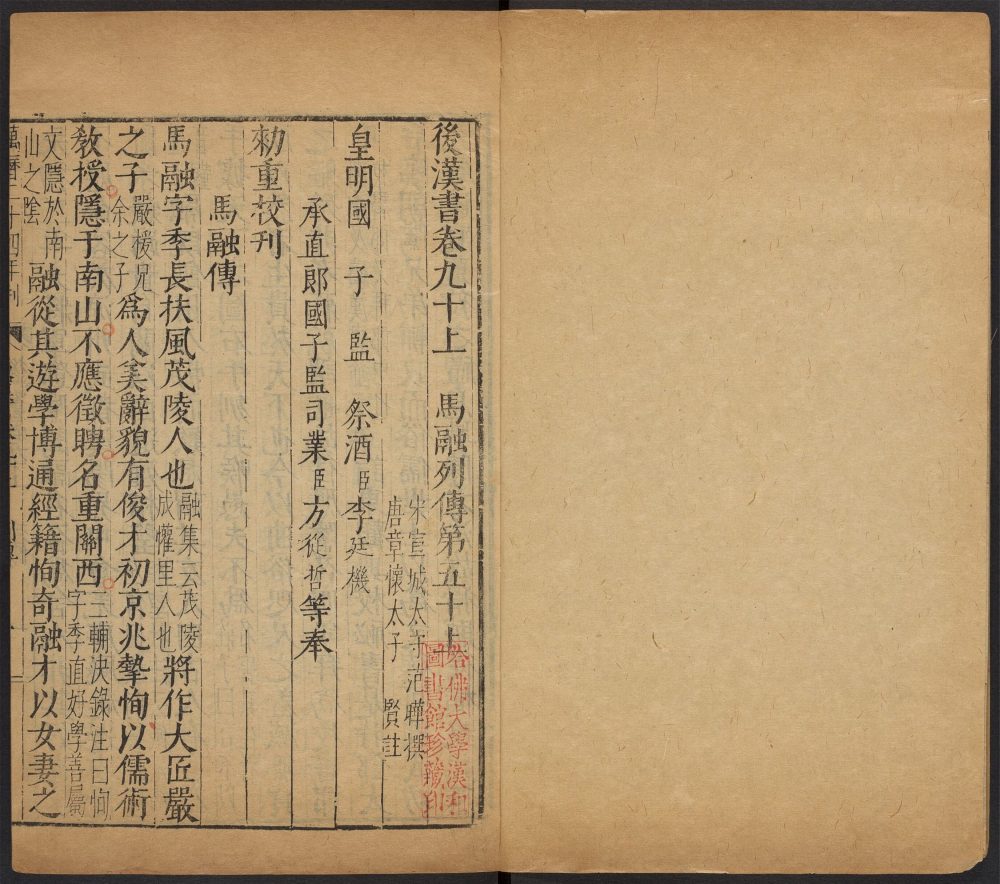 後漢書卷九十上 馬融列傳第五十上
宋宣城太守范曄撰
唐章懷太子 賢註
皇明國 子 監 祭酒臣李廷機
承直郎國子監司業臣方從哲等奉
勑重校刊
馬融傳
馬融字季長扶風茂陵人也融集云茂陵成懽里人也將作大匠嚴
之子嚴援兄余之子為人美辭貌有俊才初京兆摯恂以儒術
教授隱于南山不應徵聘名重關西三輔決錄注曰恂字季直好學善屬
文隱於南山之陰融從其遊學博通經籍恂奇融才以女妻之
萬曆二十四年刊
哈佛大學漢和
圖書館珍藏印